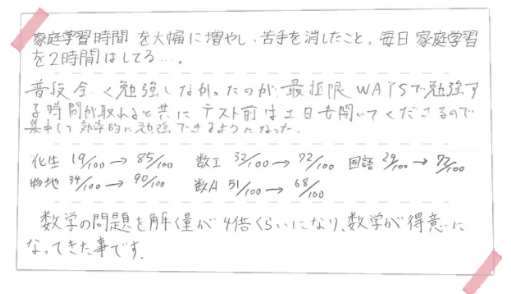 家庭学習時間を大幅に増やし、苦手を消したこと。毎日家庭学習
を2時間はしてる…。
普段全く勉強しなかったのが最低限WAYSで勉強す
る時間が取れると共にテスト前は土日も開いてくださるので
集中して効率的に勉強できるようになった。
化生 19/100→85/100 数I 32/100→72/100 国語 29/100→73/100
物地 34/100→90/100 数A 51/100→68/100
数学の問題を解く量が4倍くらいになり、数学が得意に
なってきた事です。